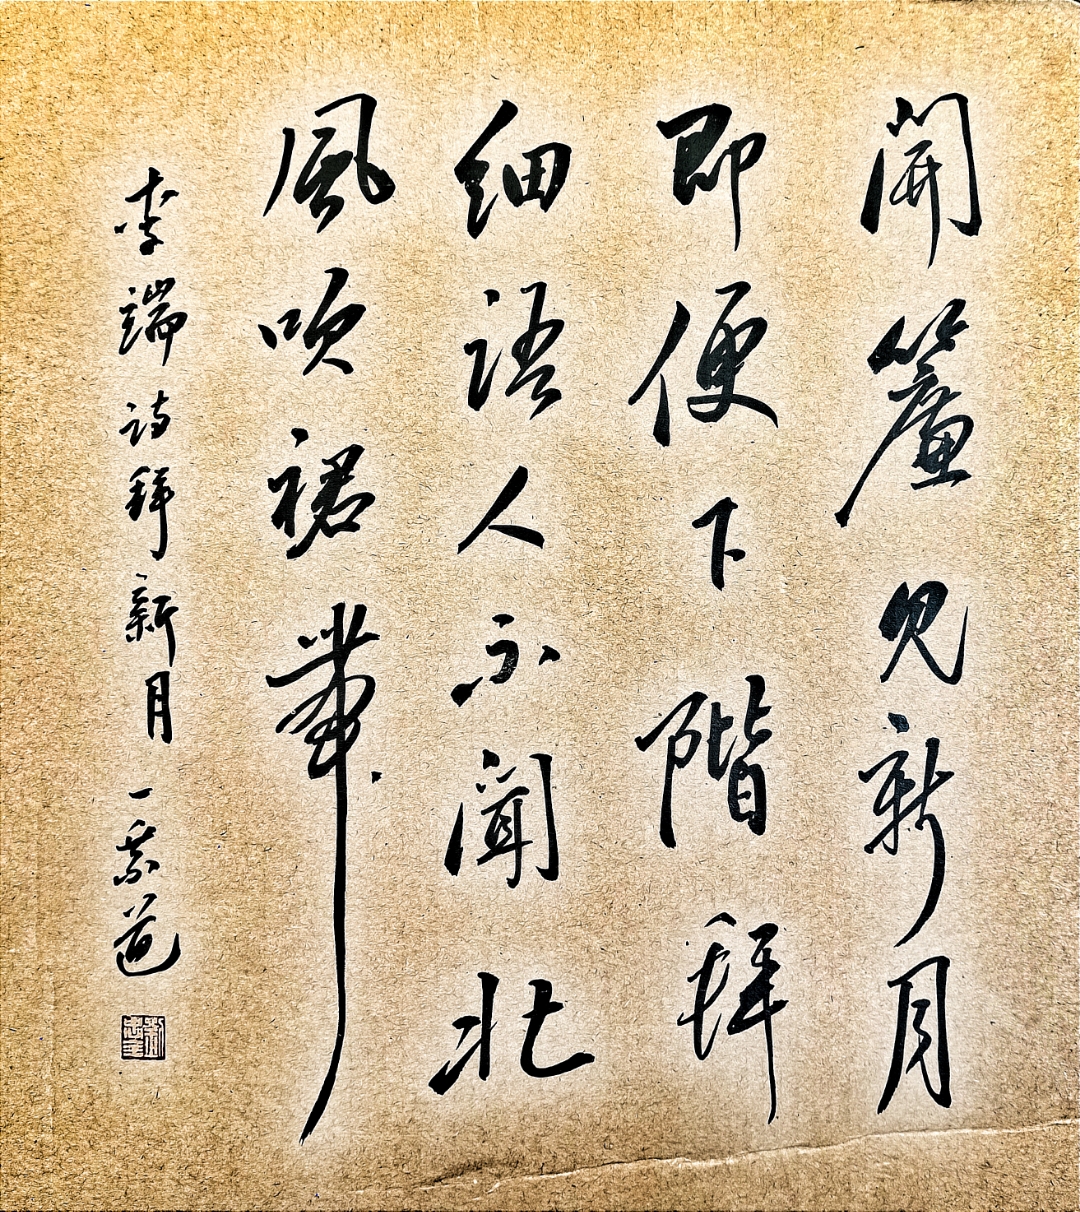 開簾見新月
即便下階拜
细語人不聞北
風吹裙帶
李端诗拜新月